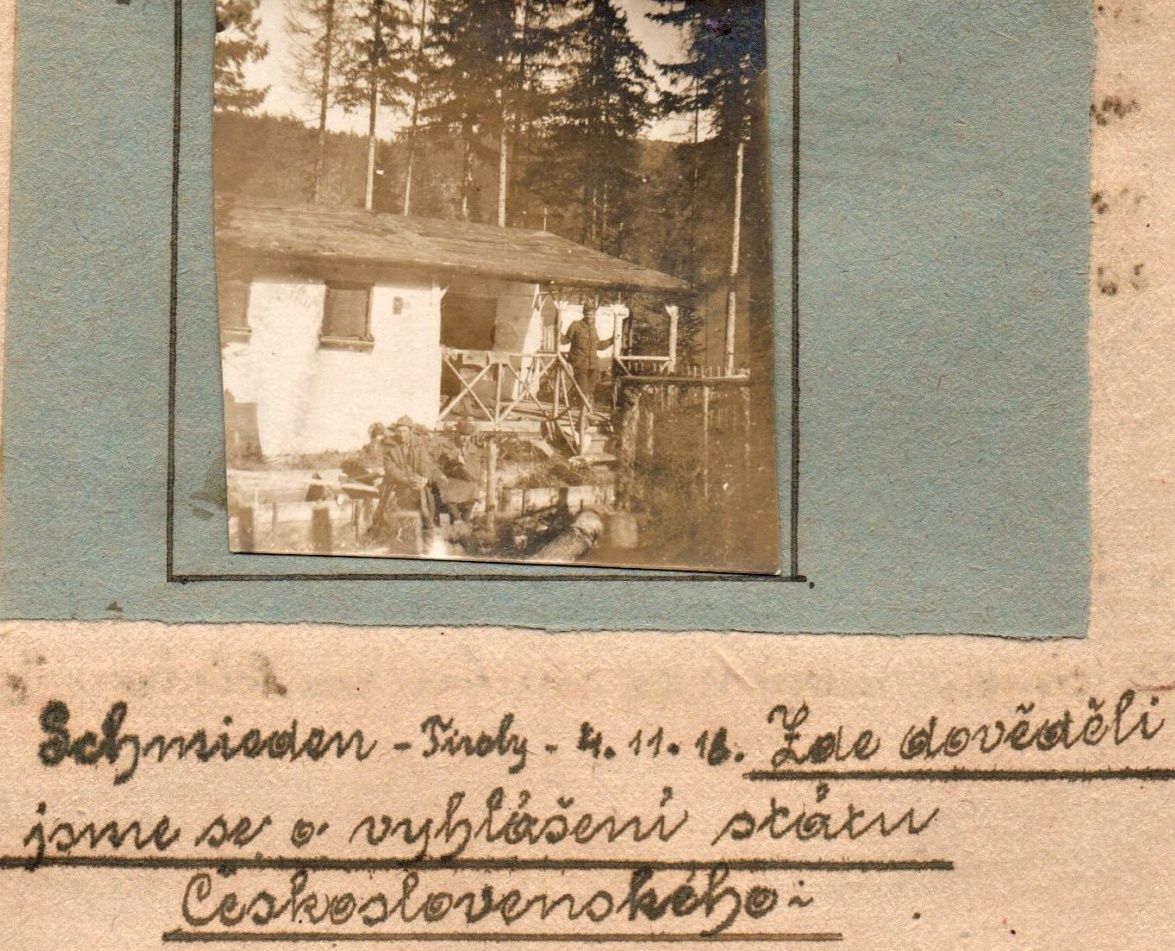 Schmieden - Tiroly - 4. 11. 18. Zde dověděli
jsme se o vyhlášení státu
Československého: